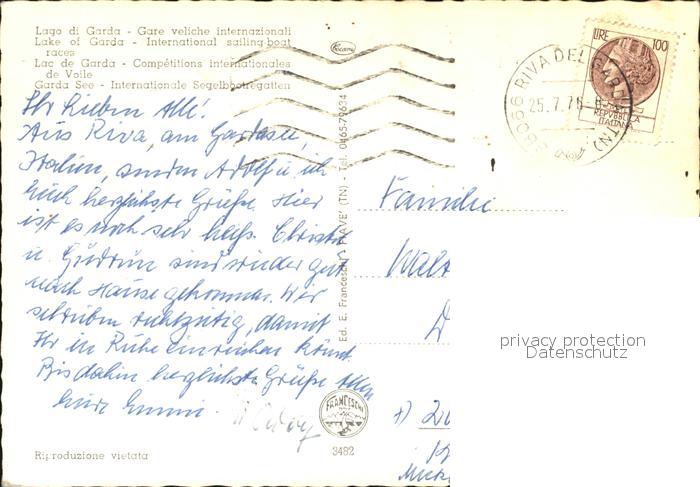 Lago di Garda - Gare veliche internazionali
Lake of Garda - International sailing-boat
races
Lac de Garda - Compétitions internationales
de Voile
Garda See - Internationale Segelbootregatten
Ihr lieben Alle!
Aus Riva, am Gardasee,
Italien, senden Adolf u. ich
Euch herzlichste Grüße. Hier
ist es noch sehr heiß. Christel
u. Gudrun sind wieder gut
nach Hause gekommen. Wir
schreiben rechtzeitig, damit
Ihr in Ruhe einreichen könnt.
Bis dahin herzlichste Grüße Allen
Eure Emmi.
Riproduzione vietata
Ed. E. Franceschi - PIAVE' (TN) - Tel. 0465-79634
FRANCESCHI
3482
LIRE 100
REPVBBLICA
ITALIANA
38066 RIVA DEL GARDA (TN)
25.7.76
Familie
Walt
D
privacy protection
Datenschutz